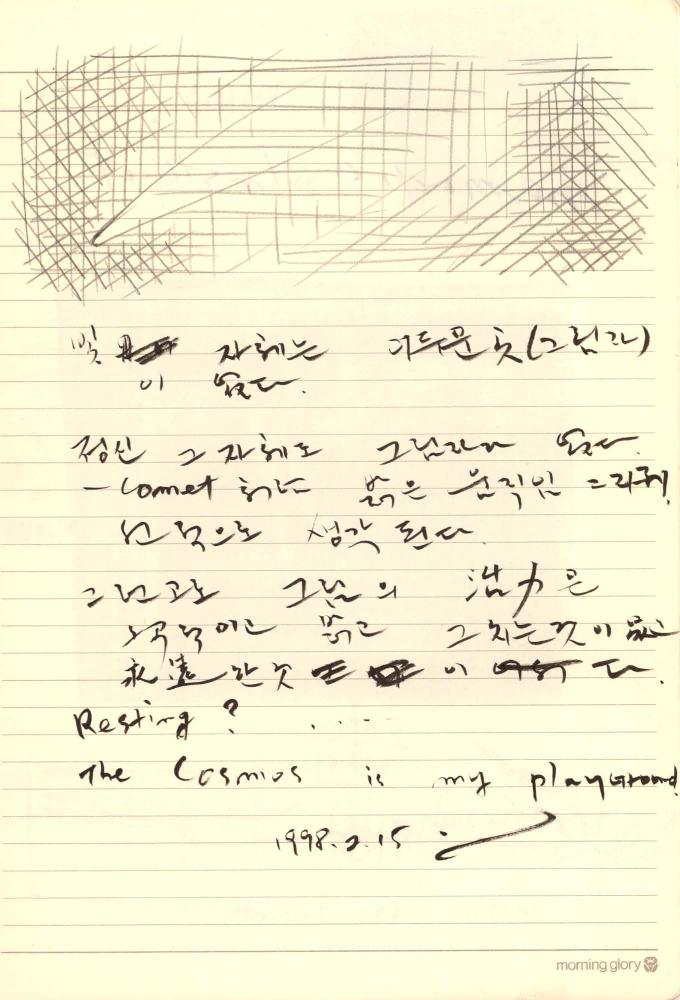 빛 자체는 어두운 것(그림자)
이 없다.
정신 그 자체도 그림자가 없다.
- Comet 처럼 밝은 움직임 그리구
으로 생각 된다.
그런고로 그님의 活力은
이고 밝고 그치는것이 없고
永遠한 것 이 다.
Resting? ....
The Cosmos is my playground.
1998. 2. 15
morning glory